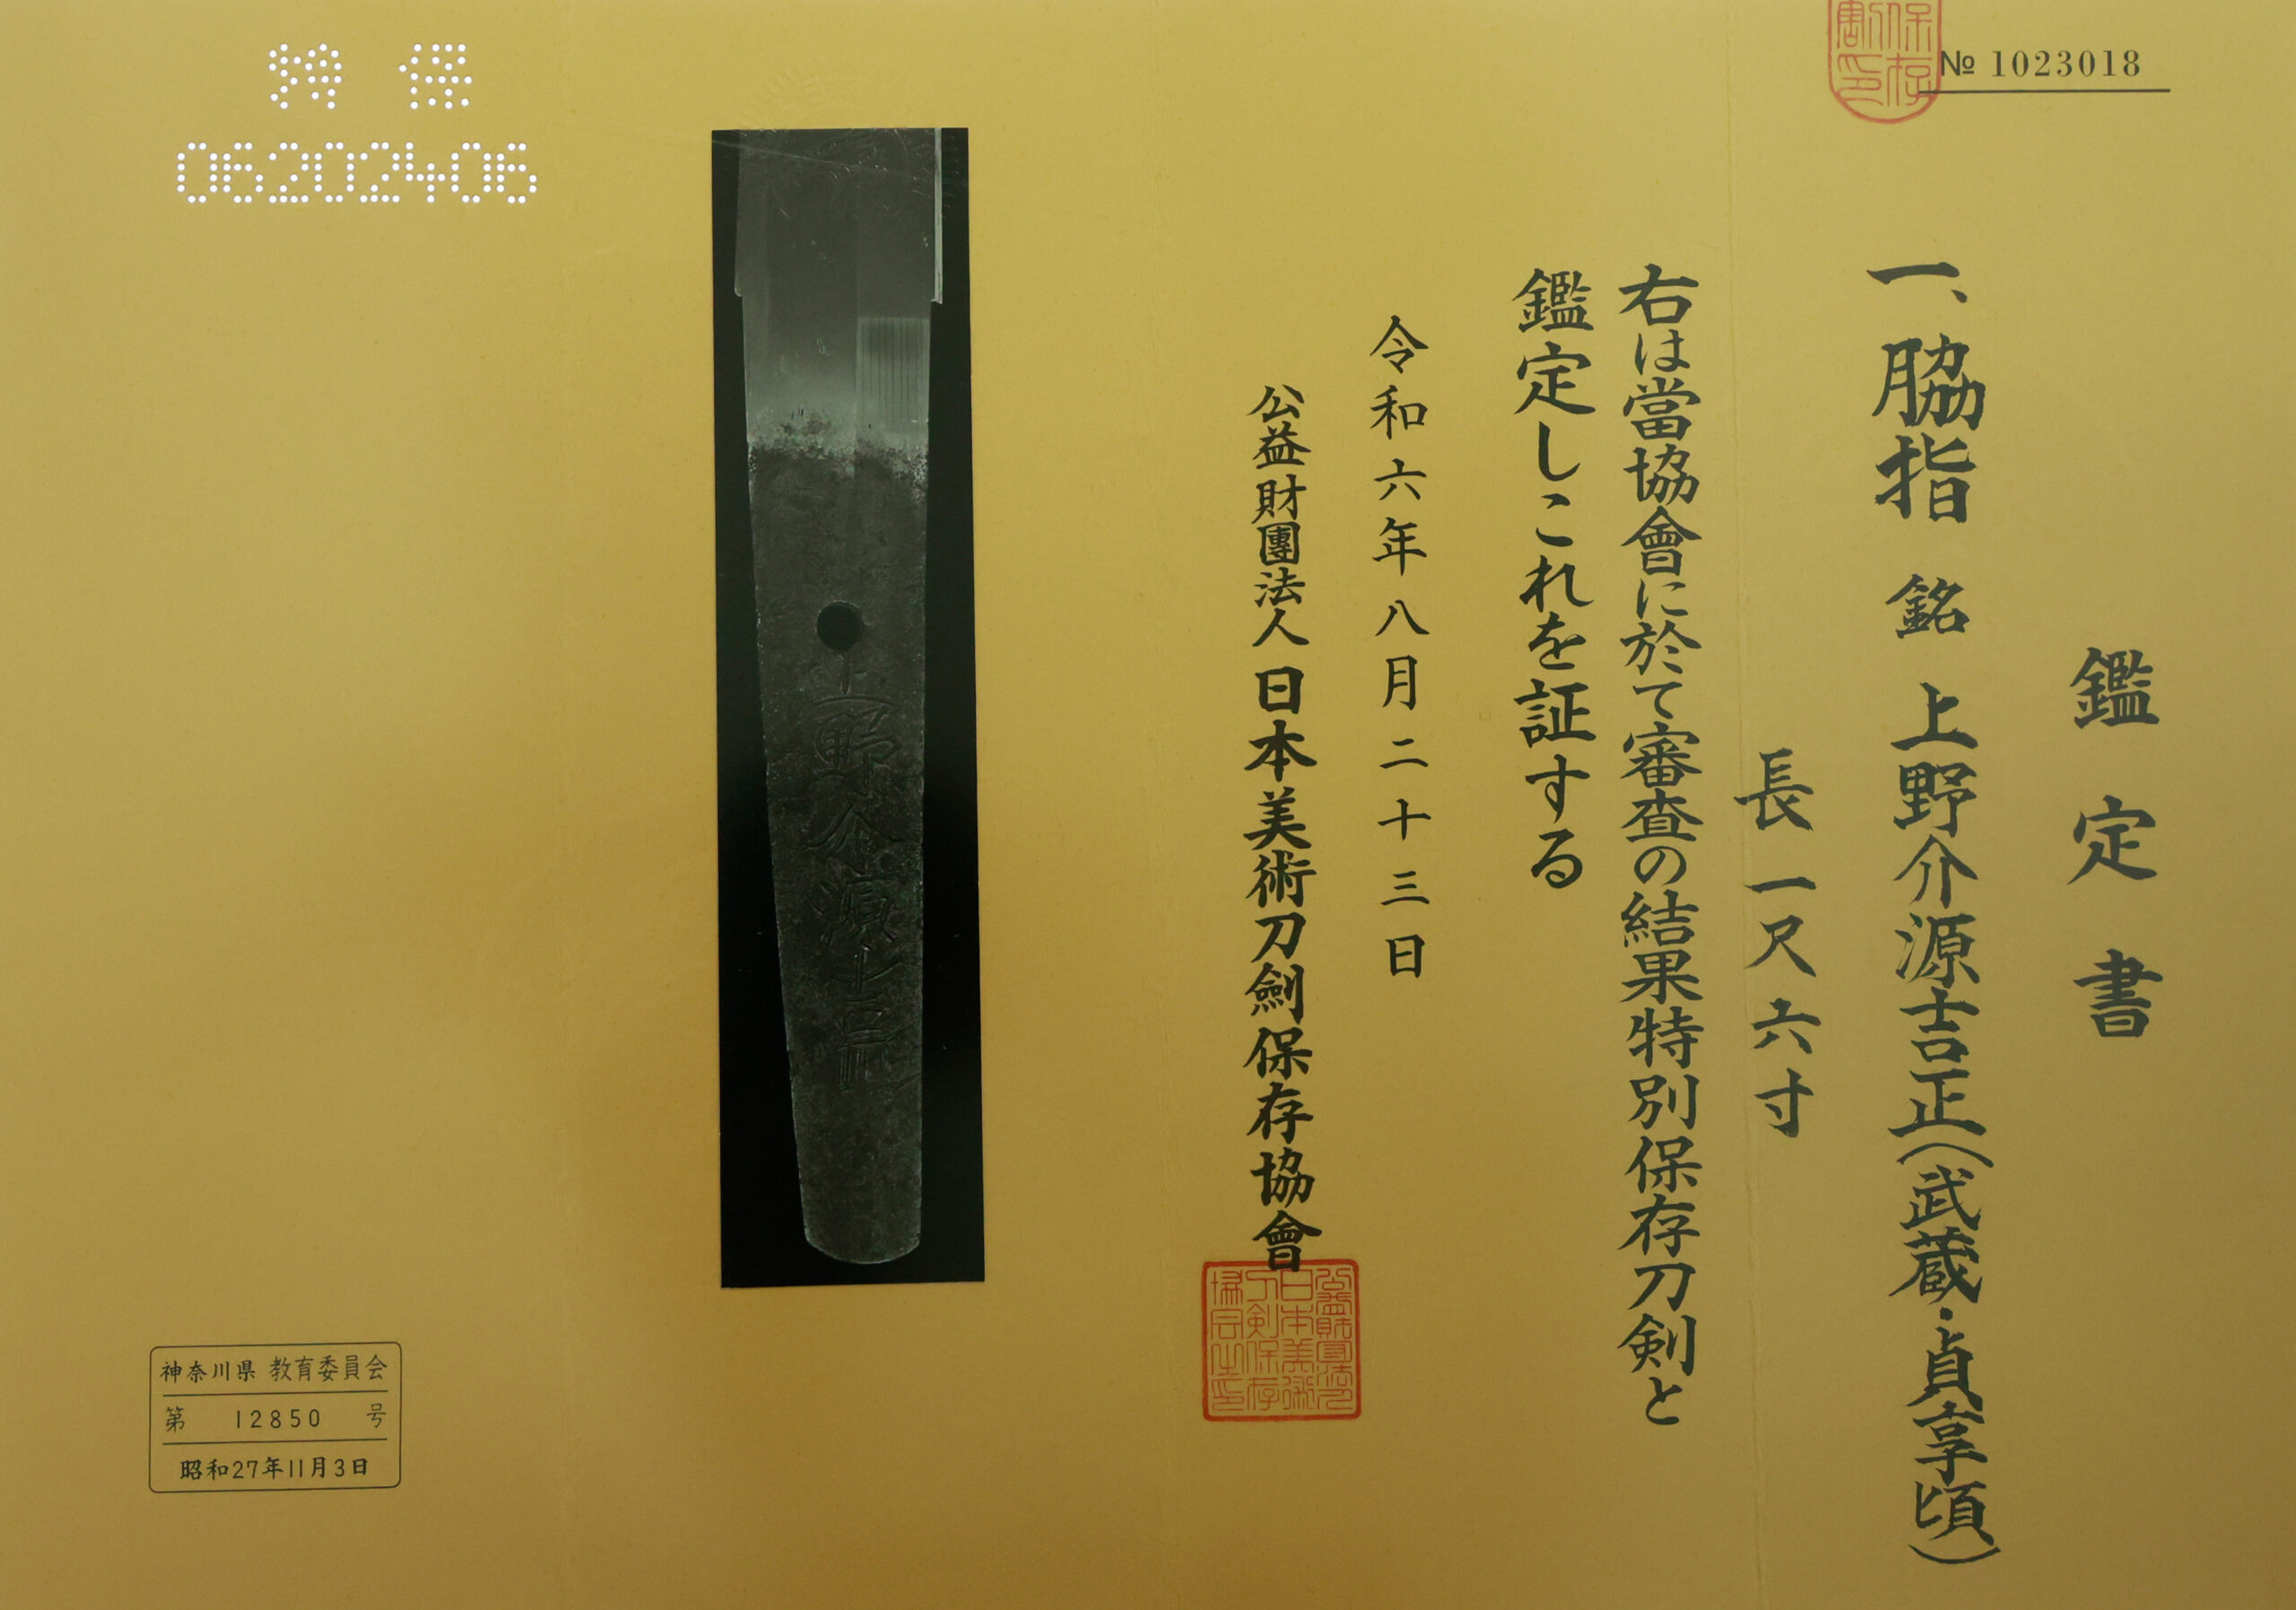 № 1023018
鑑定書
一、脇指 銘 上野介源吉正(武蔵・貞享頃)
長一尺六寸
右は當協會に於て審査の結果特別保存刀剣と
鑑定しこれを証する
令和六年八月二十三日
公益財團法人日本美術刀劍保存協會
公益財団法人日本美術刀剣保存協会之印
保存
割印
上野介源吉正
特 保
06202406
神奈川県 教育委員会
第 12850 号
昭和27年11月3日